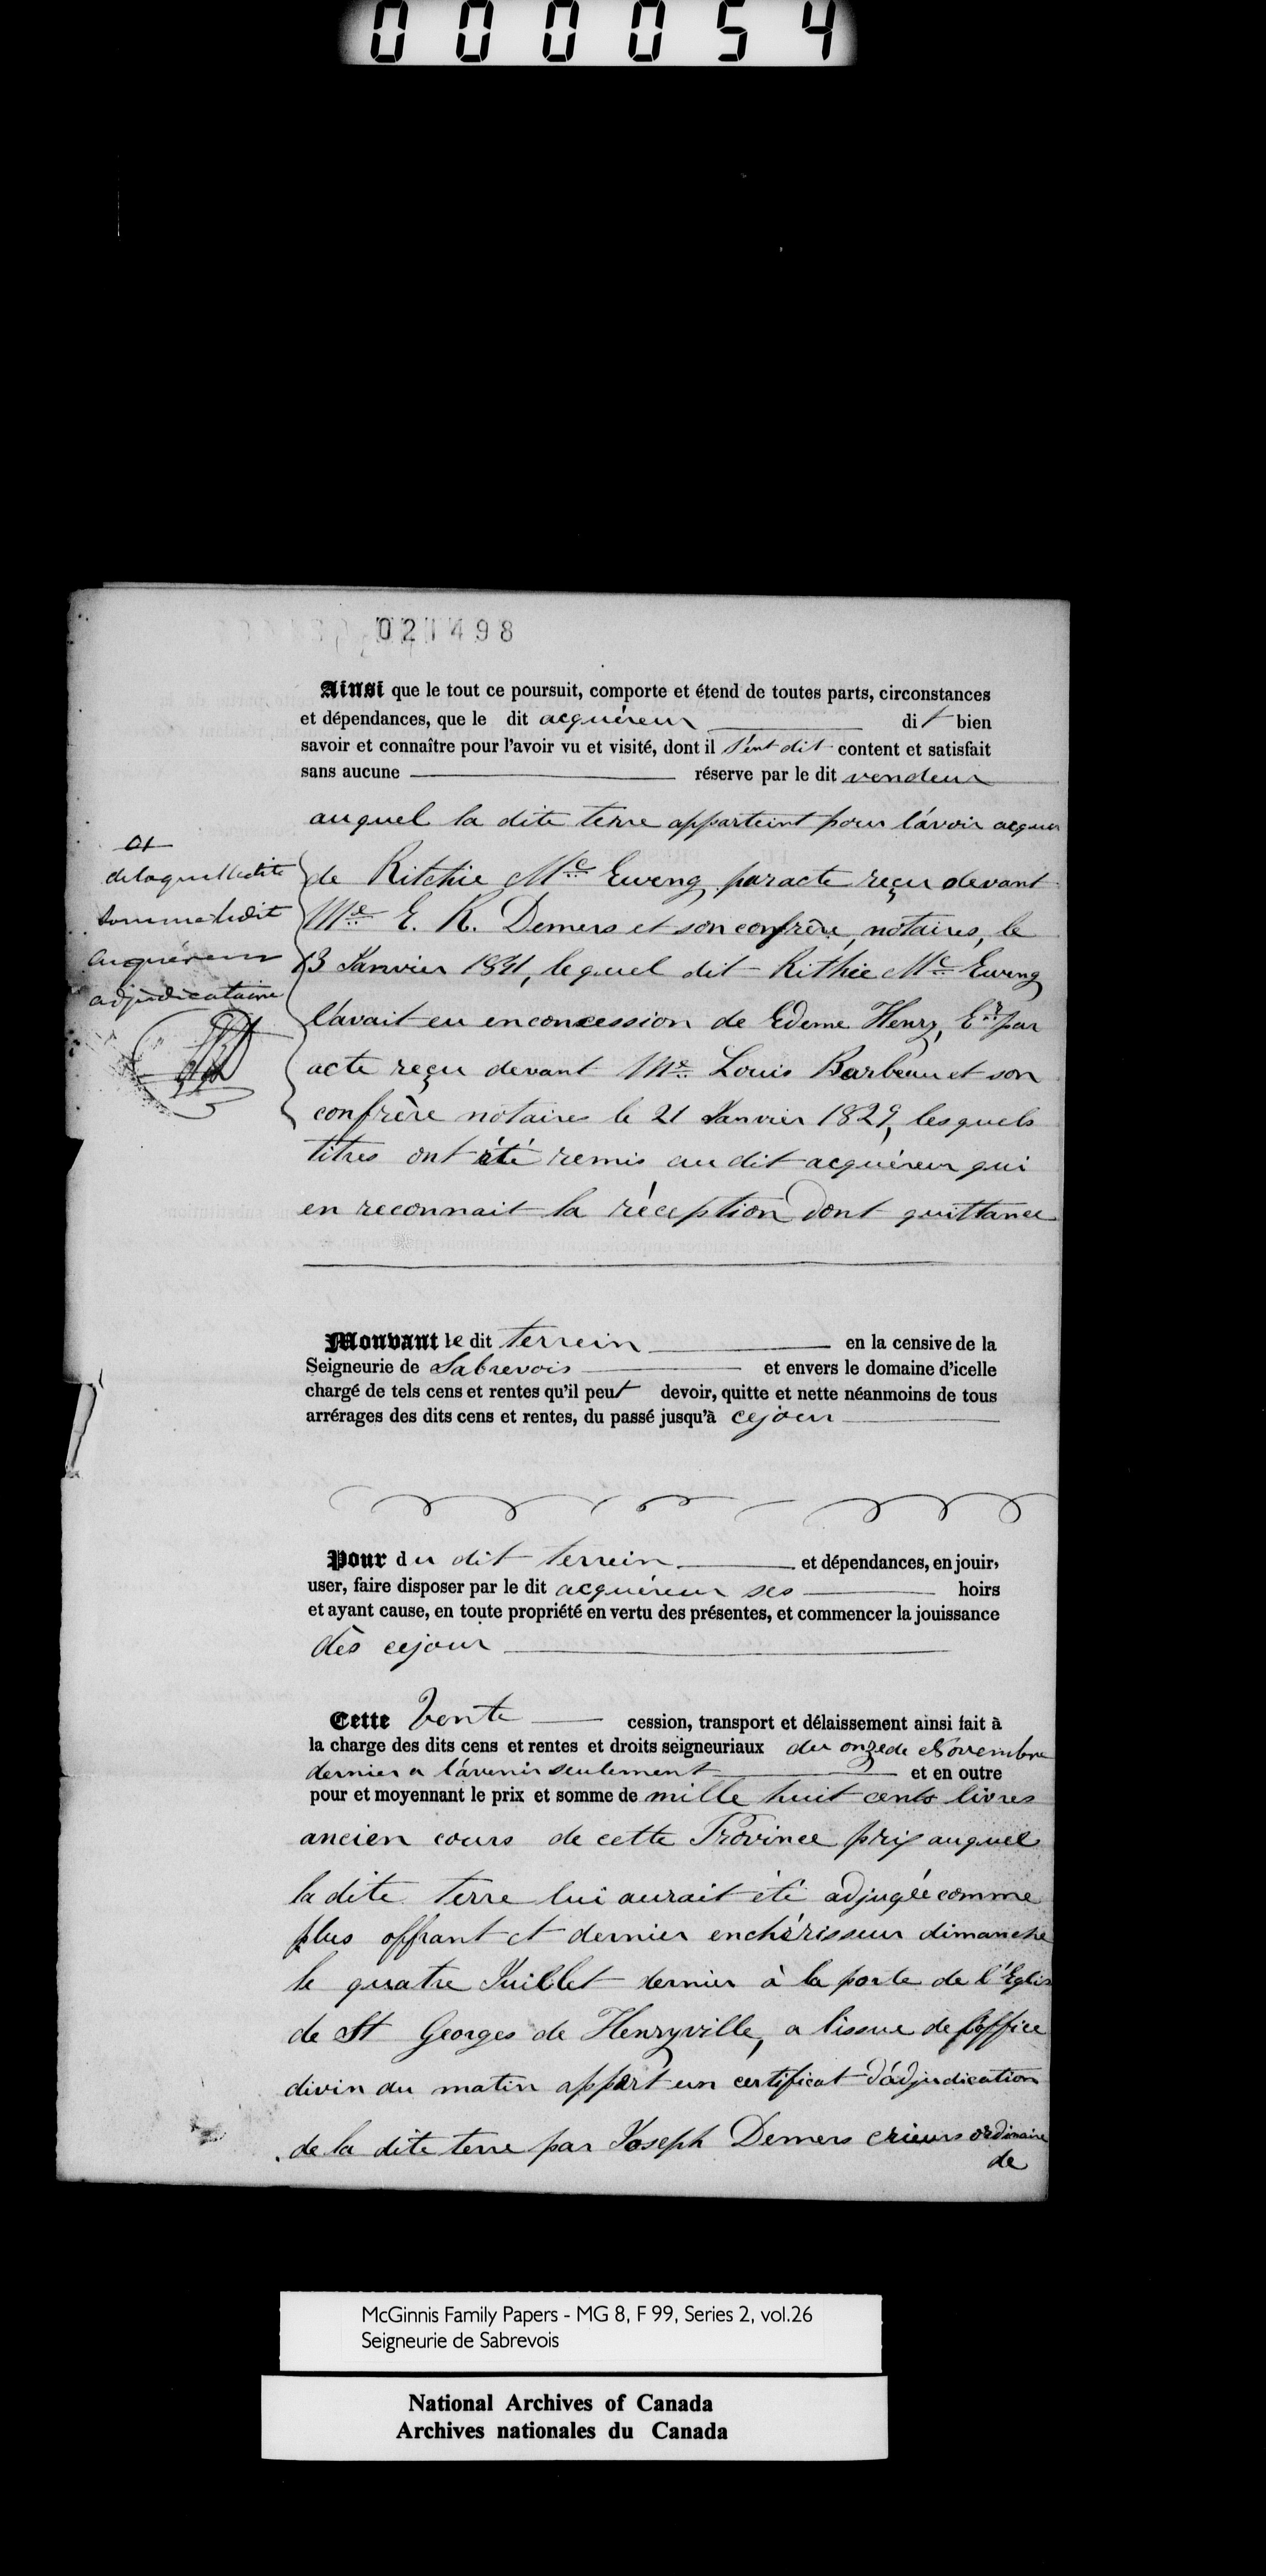 000054
021498
Ainsi que le tout ce poursuit, comporte et étend de toutes parts, circonstances
et dépendances, que le dit acquéreur dit bien
savoir et connaître pour l'avoir vu et visité, dont il s'ent dit content et satisfait
sans aucune réserve par le dit vendeur
auquel la dite terre appartient pour l'avoir acquis
de Ritchie Mc Eweng par acte reçu devant
Me E. R. Demers et son confrère, notaires, le
13 Janvier 1841, lequel dit Rithie Mc Eweng
l'avait eu en concession de Edeme Henry, Er par
acte reçu devant Me Louis Barbeau et son
confrère notaires le 21 Janvier 1829, lesquels
titres ont été remis au dit acquéreur qui
en reconnait la réception dont quittance
de laquelle dite
somme ledit
acquéreur
adjudicataire
Mouvant le dit terrein en la censive de la
Seigneurie de Sabrevois et envers le domaine d'icelle
chargé de tels cens et rentes qu'il peut devoir, quitte et nette néanmoins de tous
arrérages des dits cens et rentes, du passé jusqu'à ce jour
Pour du dit terrein et dépendances, en jouir,
user, faire disposer par le dit acquéreur ses hoirs
et ayant cause, en toute propriété en vertu des présentes, et commencer la jouissance
dès ce jour
Cette Vente cession, transport et délaissement ainsi fait à
la charge des dits cens et rentes et droits seigneuriaux du onze de Novembre
dernier a l'avenir seulement et en outre
pour et moyennant le prix et somme de mille huit cents livres
ancien cours de cette Province prix auquel
la dite terre lui aurait été adjugée comme
plus offrant et dernier enchérisseur dimanche
le quatre Juillet dernier à la porte de l'Eglise
de St Georges de Henryville, a l'issue de l'office
divin du matin appert un certificat d'adjudication
de la dite terre par Joseph Demers crieurs ordinaire
de
McGinnis Family Papers - MG 8, F 99, Series 2, vol.26
Seigneurie de Sabrevois
National Archives of Canada
Archives nationales du Canada